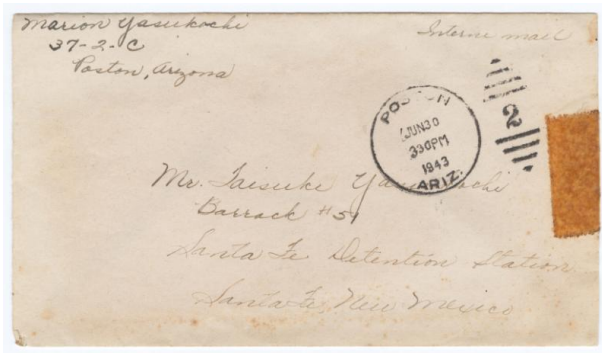 Marion Yasukochi
37-2-C
Poston, Arizona
Interne mail
POSTON
JUN 30
3 30 PM
1943
ARIZ.
2
Mr. Taisuke Yasukochi
Barrack #51
Santa Fe Detention Station
Santa Fe, New Mexico